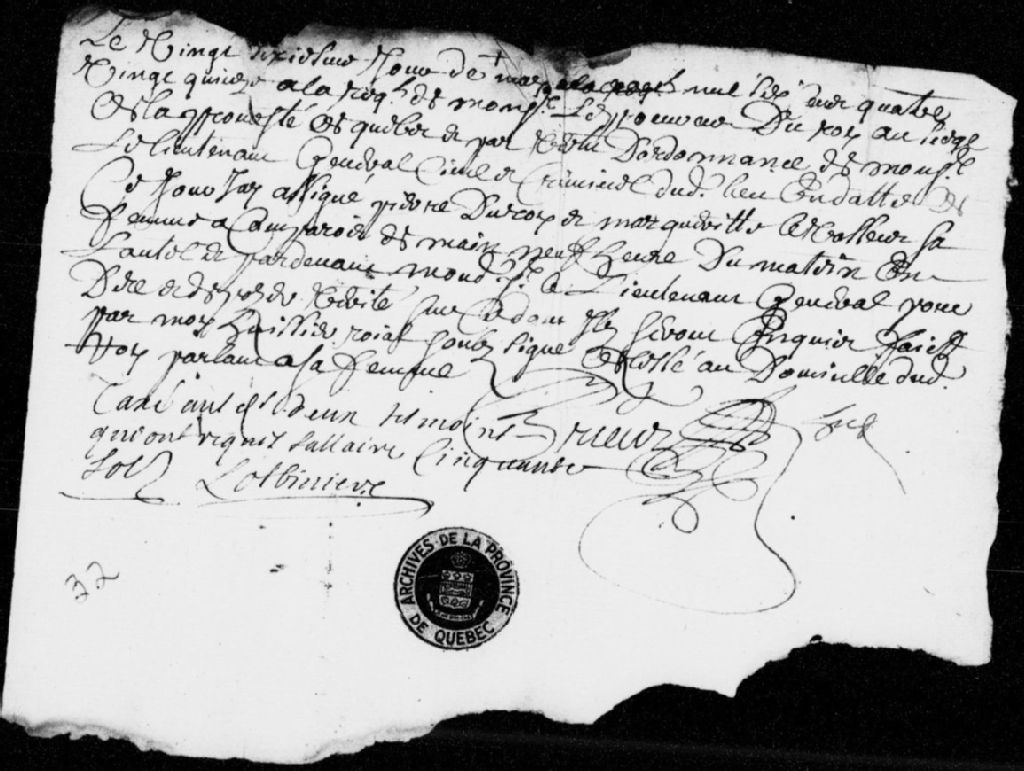 Le Vingt sixiesme Jour de mars mil six cent quatre
Vingt quinze a la reqte de monsr Le procureur Du roy au siege
de la prevosté de quebec et par Vertu D'ordonnance de monsr
Le lieutenant General Civil et Criminel dud. lieu En datte de
Ce Jour Jay assigné pierre Duroy et margueritte Levasseur sa
femme a Comparoir demain neuf heure Du matin En
Lautel et pardevant mond. sr Le Lieutenant General pour
Dire et deposer Verité sur Ce dont Ils seront Enquier faict
par moy huissier roial soubz signé et Laissé au Domicille dud.
roy parlant a sa femme
Prieur
Taxé aud. temoins
qui ont requis sallaire Cinquante
solz Lotbiniere
32
ARCHIVES DE LA PROVINCE DE QUEBEC